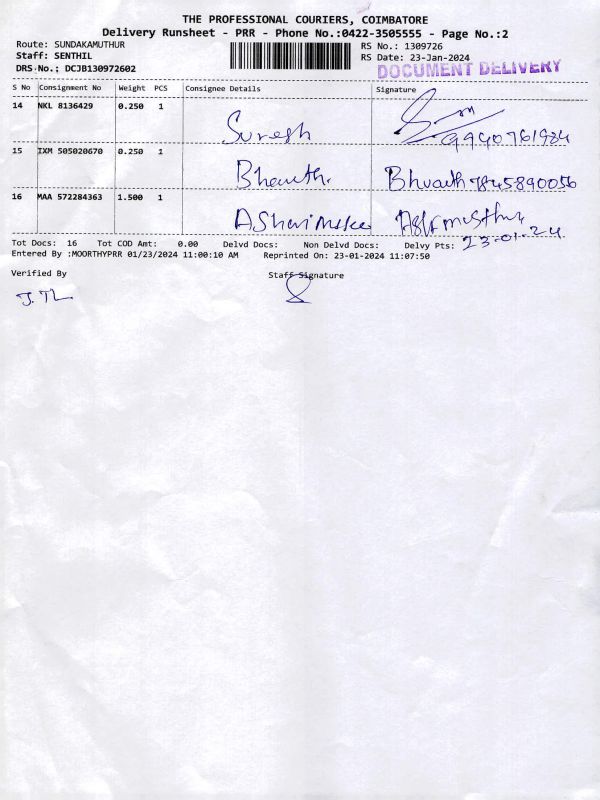 THE PROFESSIONAL COURIERS, COIMBATORE
Delivery Runsheet - PRR - Phone No.:0422-3505555 - Page No.:2
Route: SUNDAKAMUTHUR RS No.: 1309726
Staff: SENTHIL RS Date: 23-Jan-2024
DRS No.; DCJB130972602 DOCUMENT DELIVERY
S No Consignment No Weight PCS Consignee Details Signature
14 NKL 8136429 0.250 1
Suresh 9940761984
15 IXM 505020670 0.250 1
Bharath. 7845890056
16 MAA 572284363 1.500 1
23-01-24
Tot Docs: 16 Tot COD Amt: 0.00 Delvd Docs: Non Delvd Docs: Delvy Pts:
Entered By :MOORTHYPRR 01/23/2024 11:00:10 AM Reprinted On: 23-01-2024 11:07:50
Verified By Staff Signature